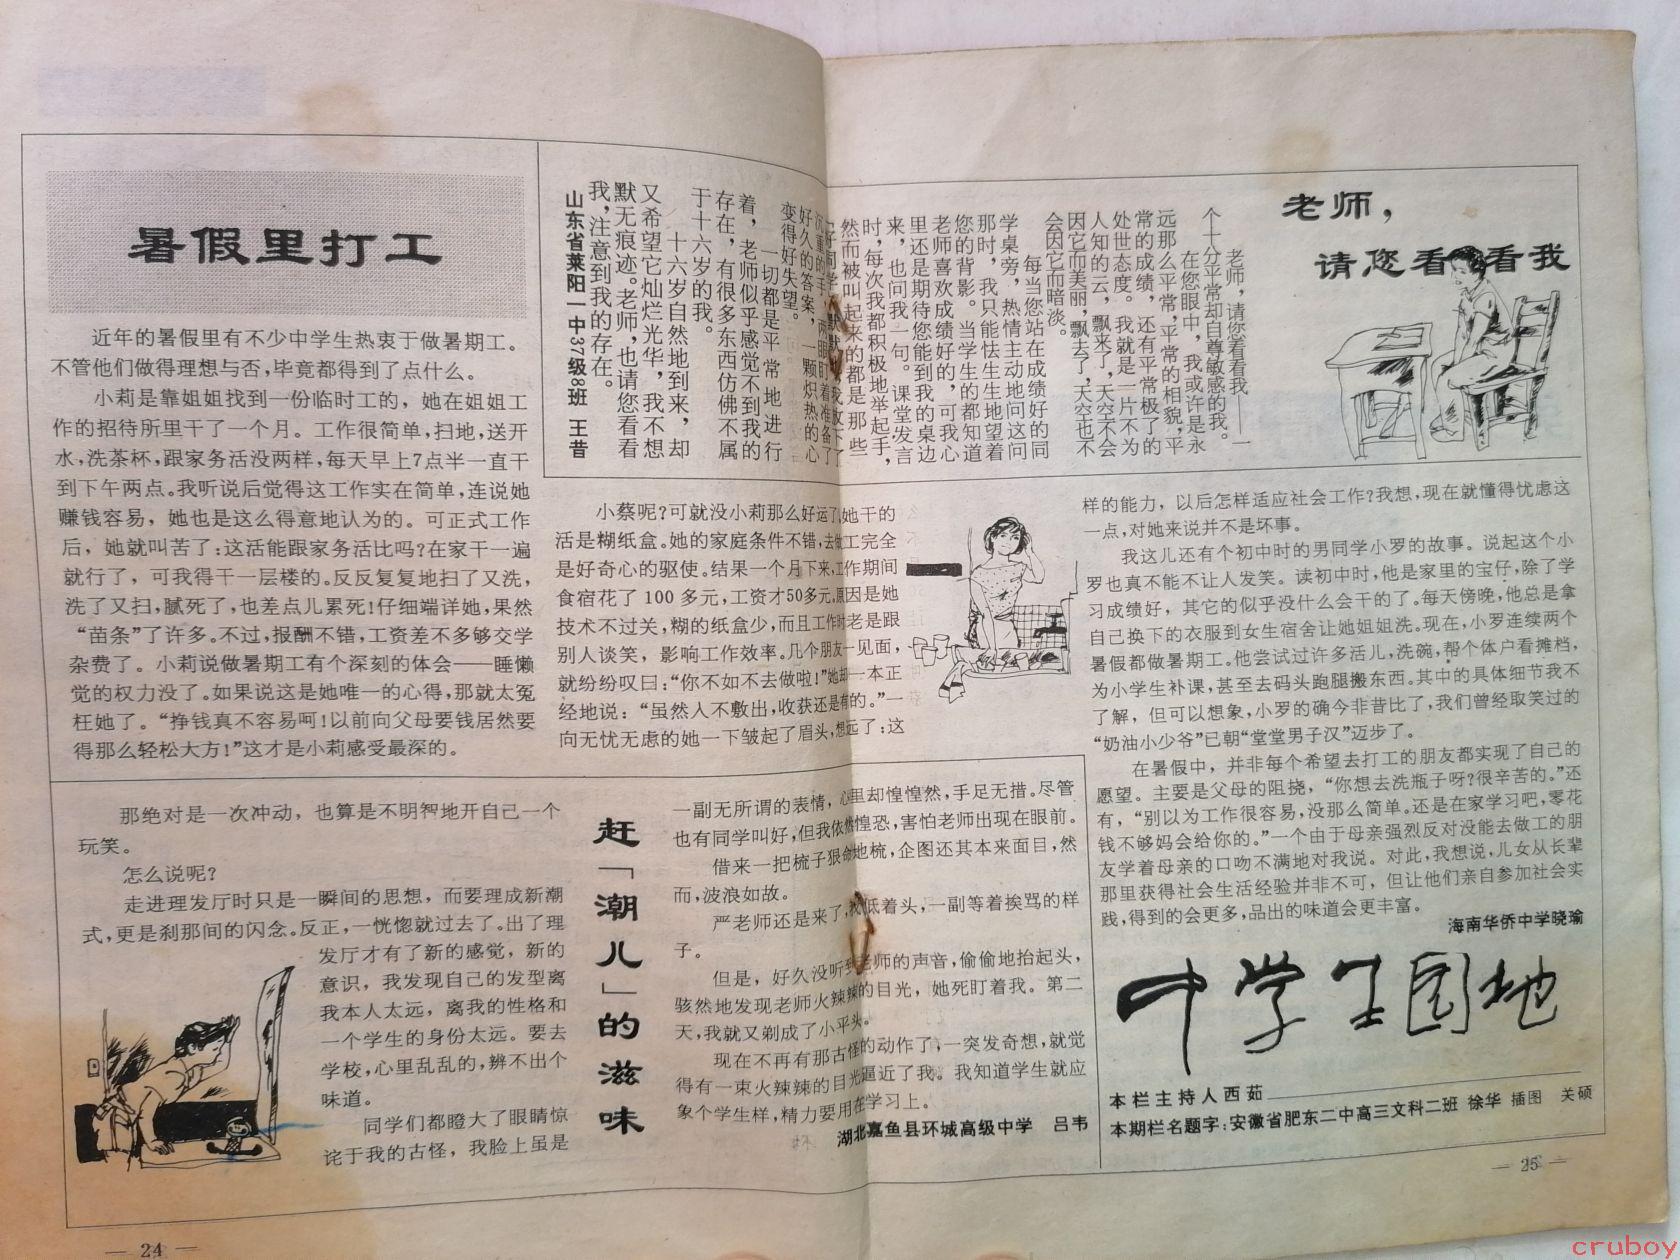 暑假里打工
近年的暑假里有不少中学生热衷于做暑期工。
不管他们做得理想与否，毕竟都得到了点什么。
小莉是靠姐姐找到一份临时工的，她在姐姐工
作的招待所里干了一个月。工作很简单，扫地，送开
水，洗茶杯，跟家务活没两样，每天早上7点半一直干
到下午两点。我听说后觉得这工作实在简单，连说她
赚钱容易，她也是这么得意地认为的。可正式工作
后，她就叫苦了：这活能跟家务活比吗？在家干一遍
就行了，可我得干一层楼的。反反复复地扫了又洗，
洗了又扫，腻死了，也差点儿累死！仔细端详她，果然
“苗条”了许多。不过，报酬不错，工资差不多够交学
杂费了。小莉说做暑期工有个深刻的体会——睡懒
觉的权力没了。如果说这是她唯一的心得，那就太冤
枉她了。“挣钱真不容易呵！以前向父母要钱居然要
得那么轻松大方！”这才是小莉感受最深的。
小蔡呢？可就没小莉那么好运了，她干的
活是糊纸盒。她的家庭条件不错，去做工完全
是好奇心的驱使。结果一个月下来，工作期间
食宿花了100多元，工资才50多元，原因是她
技术不过关，糊的纸盒少，而且工作时老是跟
别人谈笑，影响工作效率。几个朋友一见面，
就纷纷叹曰：“你不如不去做啦！”她却一本正
经地说：“虽然人不敷出，收获还是有的。”一
向无忧无虑的她一下皱起了眉头，想远了：这
样的能力，以后怎样适应社会工作？我想，现在就懂得忧虑这
一点，对她来说并不是坏事。
我这儿还有个初中时的男同学小罗的故事。说起这个小
罗也真不能不让人发笑。读初中时，他是家里的宝仔，除了学
习成绩好，其它的似乎没什么会干的了。每天傍晚，他总是拿
自己换下的衣服到女生宿舍让她姐姐洗。现在，小罗连续两个
暑假都做暑期工。他尝试过许多活儿，洗碗，帮个体户看摊档，
为小学生补课，甚至去码头跑腿搬东西。其中的具体细节我不
了解，但可以想象，小罗的确今非昔比了，我们曾经取笑过的
“奶油小少爷”已朝“堂堂男子汉”迈步了。
在暑假中，并非每个希望去打工的朋友都实现了自己的
愿望。主要是父母的阻挠，“你想去洗瓶子呀？很辛苦的。”还
有，“别以为工作很容易，没那么简单。还是在家学习吧，零花
钱不够妈会给你的。”一个由于母亲强烈反对没能去做工的朋
友学着母亲的口吻不满地对我说。对此，我想说，儿女从长辈
那里获得社会生活经验并非不可，但让他们亲自参加社会实
践，得到的会更多，品出的味道会更丰富。
海南华侨中学晓瑜
老师，
请您看看我
老师，请您看看我——一
个十分平常却自尊敏感的我。
在您眼中，我或许是永
远那么平常，平常的相貌，平
常的成绩，还有平常极了的
处世态度。我就是一片不为
人知的云，飘来了，天空不会
因它而美丽，飘去了，天空也不
会因它而暗淡。
每当您站在成绩好的同
学桌旁，热情主动地问这问
那时，我只能怯生生地望着
您的背影。当学生的都知道
老师喜欢成绩好的，可我心
里还是期待您能到我的桌边
来，也问我一句。课堂发言
时，每次我都积极地举起手，
然而被叫起来的都是那些
“好同学”，默默地，我放下了
沉重的手，两眼盯着准备了
好久的答案，一颗炽热的心
变得好失望。
一切都是平常地进行
着，老师似乎感觉不到我的
存在，有很多东西仿佛不属
于十六岁的我。
十六岁自然地到来，却
又希望它灿烂光华，我不想
默无痕迹。老师，也请您看看
我，注意到我的存在。
山东省莱阳一中37级8班 王昔
赶「潮儿」的滋味
那绝对是一次冲动，也算是不明智地开自己一个
玩笑。
怎么说呢？
走进理发厅时只是一瞬间的思想，而要理成新潮
式，更是刹那间的闪念。反正，一恍惚就过去了。出了理
发厅才有了新的感觉，新的
意识，我发现自己的发型离
我本人太远，离我的性格和
一个学生的身份太远。要去
学校，心里乱乱的，辨不出个
味道。
同学们都瞪大了眼睛惊
诧于我的古怪，我脸上虽是
一副无所谓的表情，心里却惶惶然，手足无措。尽管
也有同学叫好，但我依然惶恐，害怕老师出现在眼前。
借来一把梳子狠命地梳，企图还其本来面目，然
而，波浪如故。
严老师还是来了，我低着头，一副等着挨骂的样
子。
但是，好久没听到老师的声音，偷偷地抬起头，
骇然地发现老师火辣辣的目光，她死盯着我。第二
天，我就又剃成了小平头。
现在不再有那古怪的动作了，一突发奇想，就觉
得有一束火辣辣的目光逼近了我。我知道学生就应
象个学生样，精力要用在学习上。
湖北嘉鱼县环城高级中学 吕韦
中学生园地
本栏主持人西茹
本期栏名题字：安徽省肥东二中高三文科二班 徐华 插图 关硕
— 24 —
— 25 —
cruboy